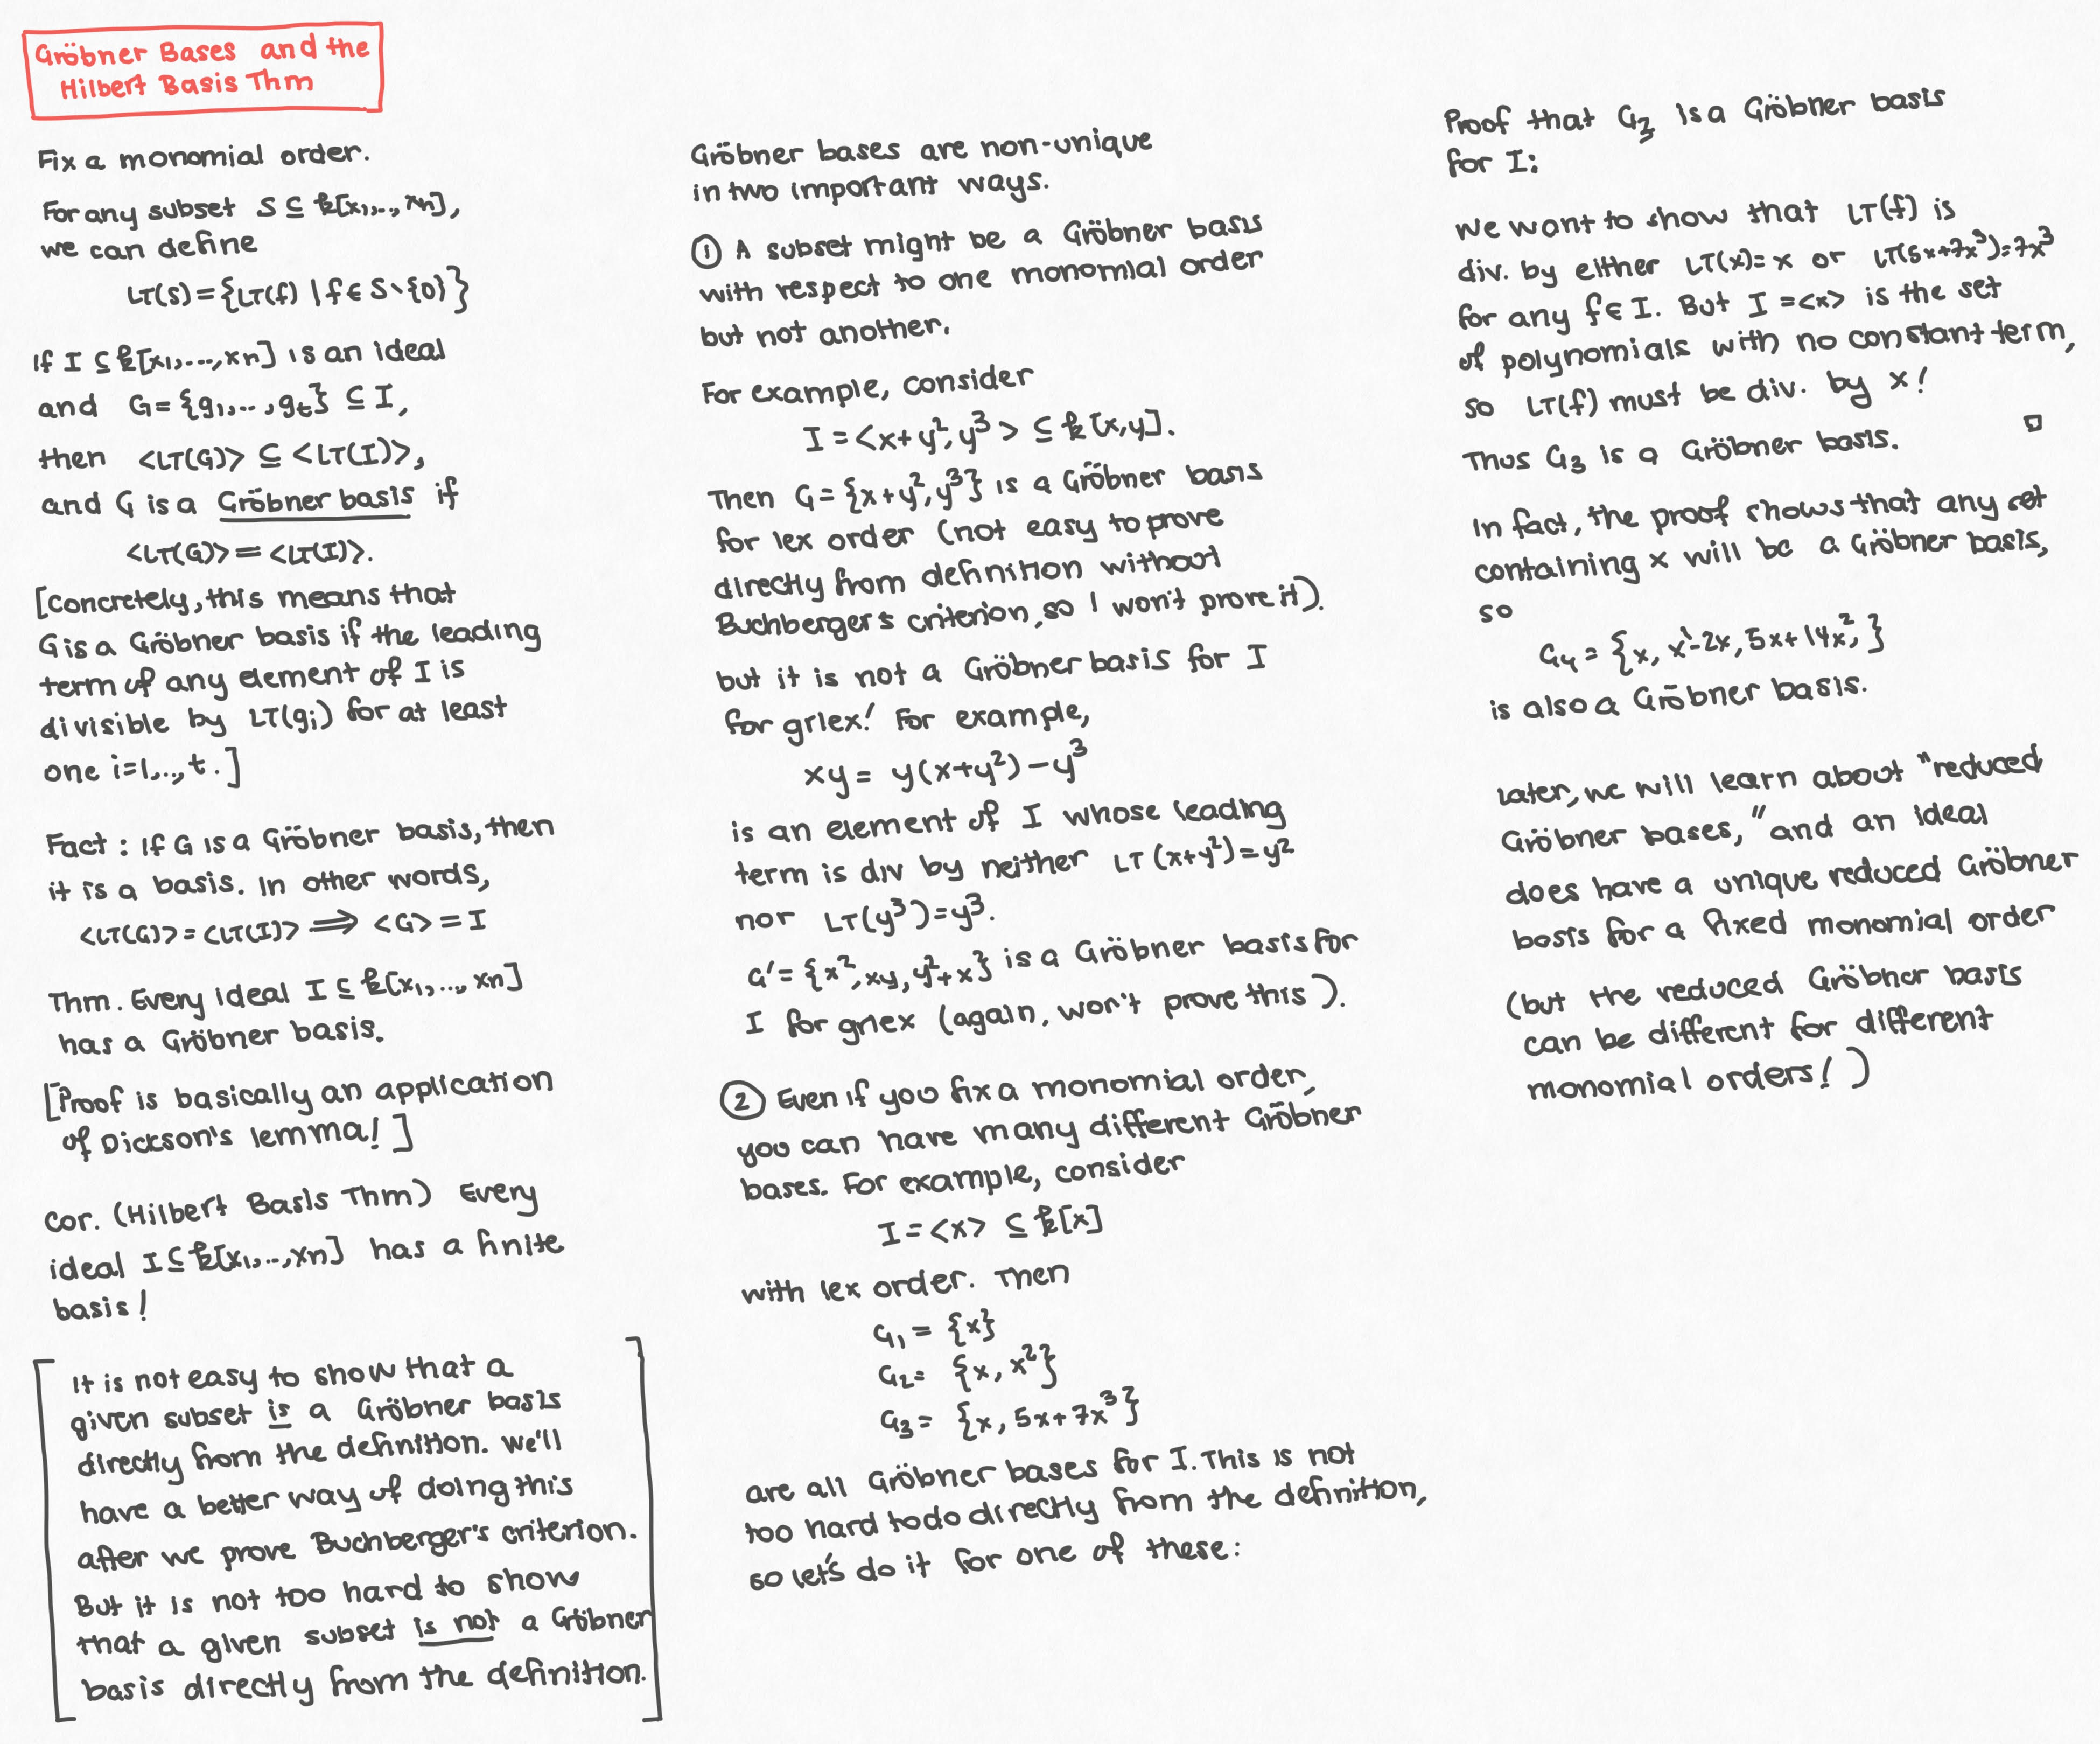 Gröbner Bases and the
Hilbert Basis Thm
Fix a monomial order.
For any subset S ⊆ k[x₁,..,xn],
we can define
LT(S)={LT(f) | f∈S∖{0}}
If I ⊆ k[x₁,...,xn] is an ideal
and G={g₁,..,gt} ⊆ I,
then <LT(G)> ⊆ <LT(I)>,
and G is a Gröbner basis if
<LT(G)> = <LT(I)>.
[Concretely, this means that
G is a Gröbner basis if the leading
term of any element of I is
divisible by LT(gi) for at least
one i=1,..,t.]
Fact: If G is a Gröbner basis, then
it is a basis. In other words,
<LT(G)> = <LT(I)> ⟹ <G> = I
Thm. Every ideal I ⊆ k[x₁,..,xn]
has a Gröbner basis.
[Proof is basically an application
of Dickson's lemma!]
Cor. (Hilbert Basis Thm) Every
ideal I⊆k[x₁,..,xn] has a finite
basis!
[It is not easy to show that a
given subset is a Gröbner basis
directly from the definition. We'll
have a better way of doing this
after we prove Buchberger's criterion.
But it is not too hard to show
that a given subset is not a Gröbner
basis directly from the definition.]
Gröbner bases are non-unique
in two important ways.
① A subset might be a Gröbner basis
with respect to one monomial order
but not another.
For example, consider
I = <x+y², y³> ⊆ k[x,y].
Then G={x+y², y³} is a Gröbner basis
for lex order (not easy to prove
directly from definition without
Buchberger's criterion, so I won't prove it).
but it is not a Gröbner basis for I
for grlex! For example,
xy = y(x+y²) - y³
is an element of I whose leading
term is div by neither LT(x+y²)=y²
nor LT(y³)=y³.
G'={x², xy, y²+x} is a Gröbner basis for
I for grlex (again, won't prove this).
② Even if you fix a monomial order,
you can have many different Gröbner
bases. For example, consider
I = <x> ⊆ k[x]
with lex order. Then
G₁ = {x}
G₂= {x, x²}
G₃ = {x, 5x+7x³}
are all Gröbner bases for I. This is not
too hard to do directly from the definition,
so let's do it for one of these:
Proof that G₃ is a Gröbner basis
for I:
We want to show that LT(f) is
div. by either LT(x)=x or LT(5x+7x³)=7x³
for any f∈I. But I=<x> is the set
of polynomials with no constant term,
so LT(f) must be div. by x!
Thus G₃ is a Gröbner basis. □
In fact, the proof shows that any set
containing x will be a Gröbner basis,
so
G₄ = {x, -2x, 5x+14x², }
is also a Gröbner basis.
Later, we will learn about "reduced
Gröbner bases," and an ideal
does have a unique reduced Gröbner
basis for a fixed monomial order
(but the reduced Gröbner basis
can be different for different
monomial orders!)